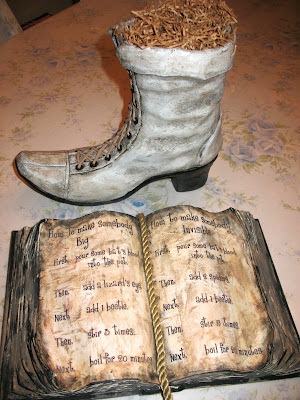 How to make somebody
Big
First, pour some bat's blood
into the pot.
Then, add a lizard's eye.
Next, add 1 beetle.
Then, stir 3 times.
Next, boil for 20 minutes.
How to make somebody
Invisible
First pour some bat's blood
into the pot.
Then, add a spider.
Next, add 1 beetle.
Then, stir times.
Next, boil for 20 minutes.